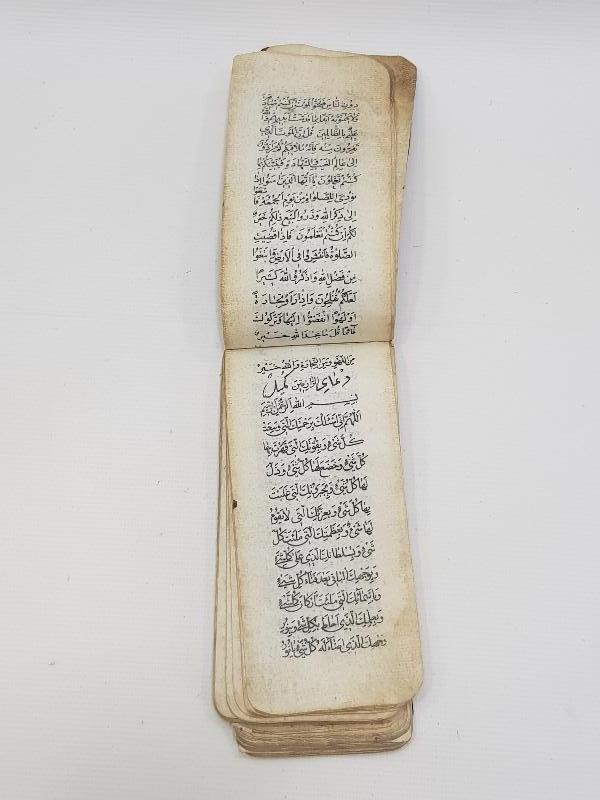 دون الناس فتمنوا الموت ان كنتم صادقين
ولا يتمنونه ابدا بما قدمت ايديهم والله
عليم بالظالمين قل ان الموت الذي
تفرون منه فانه ملاقيكم ثم تردون
الى عالم الغيب والشهادة فينبئكم بما
كنتم تعملون يا ايها الذين امنوا اذا
نودي للصلوة من يوم الجمعة فاسعوا
الى ذكر الله وذروا البيع ذلكم خير
لكم ان كنتم تعلمون فاذا قضيت
الصلوة فانتشروا في الارض وابتغوا
من فضل الله واذكروا الله كثيرا
لعلكم تفلحون واذا راوا تجارة
او لهوا انفضوا اليها وتركوك
قائما قل ما عند الله خير
من اللهو ومن التجارة والله خير
دعاي كميل
بسم الله الرحمن الرحيم
اللهم اني اسئلك برحمتك التي وسعت
كل شيء وبقوتك التي قهرت بها
كل شيء وخضع لها كل شيء وذل
لها كل شيء وبجبروتك التي غلبت
بها كل شيء وبعزتك التي لا يقوم
لها شيء وبعظمتك التي ملئت كل
شيء وبسلطانك الذي على كل شيء
وبوجهك الباقي بعد فناء كل شيء
وباسمائك التي ملئت اركان كل شيء
وبعلمك الذي احاط بكل شيء وبنور
وجهك الذي اضاء له كل شيء يا نور